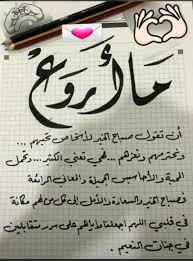 ما أروع
أن تقول صباح الخير لأشخاص تحبهم ...
وتحترمهم وتعزهم ... فهي تعني الكثير ... وتحمل
المودة والأحاسيس الجميلة والمعاني الرائعة
وصباح الخير والسعادة والأمل إلى كل من لهم مكانة
في قلبي اللهم اجعلنا وإياهم على سرر متقابلين
في جنات النعيم .